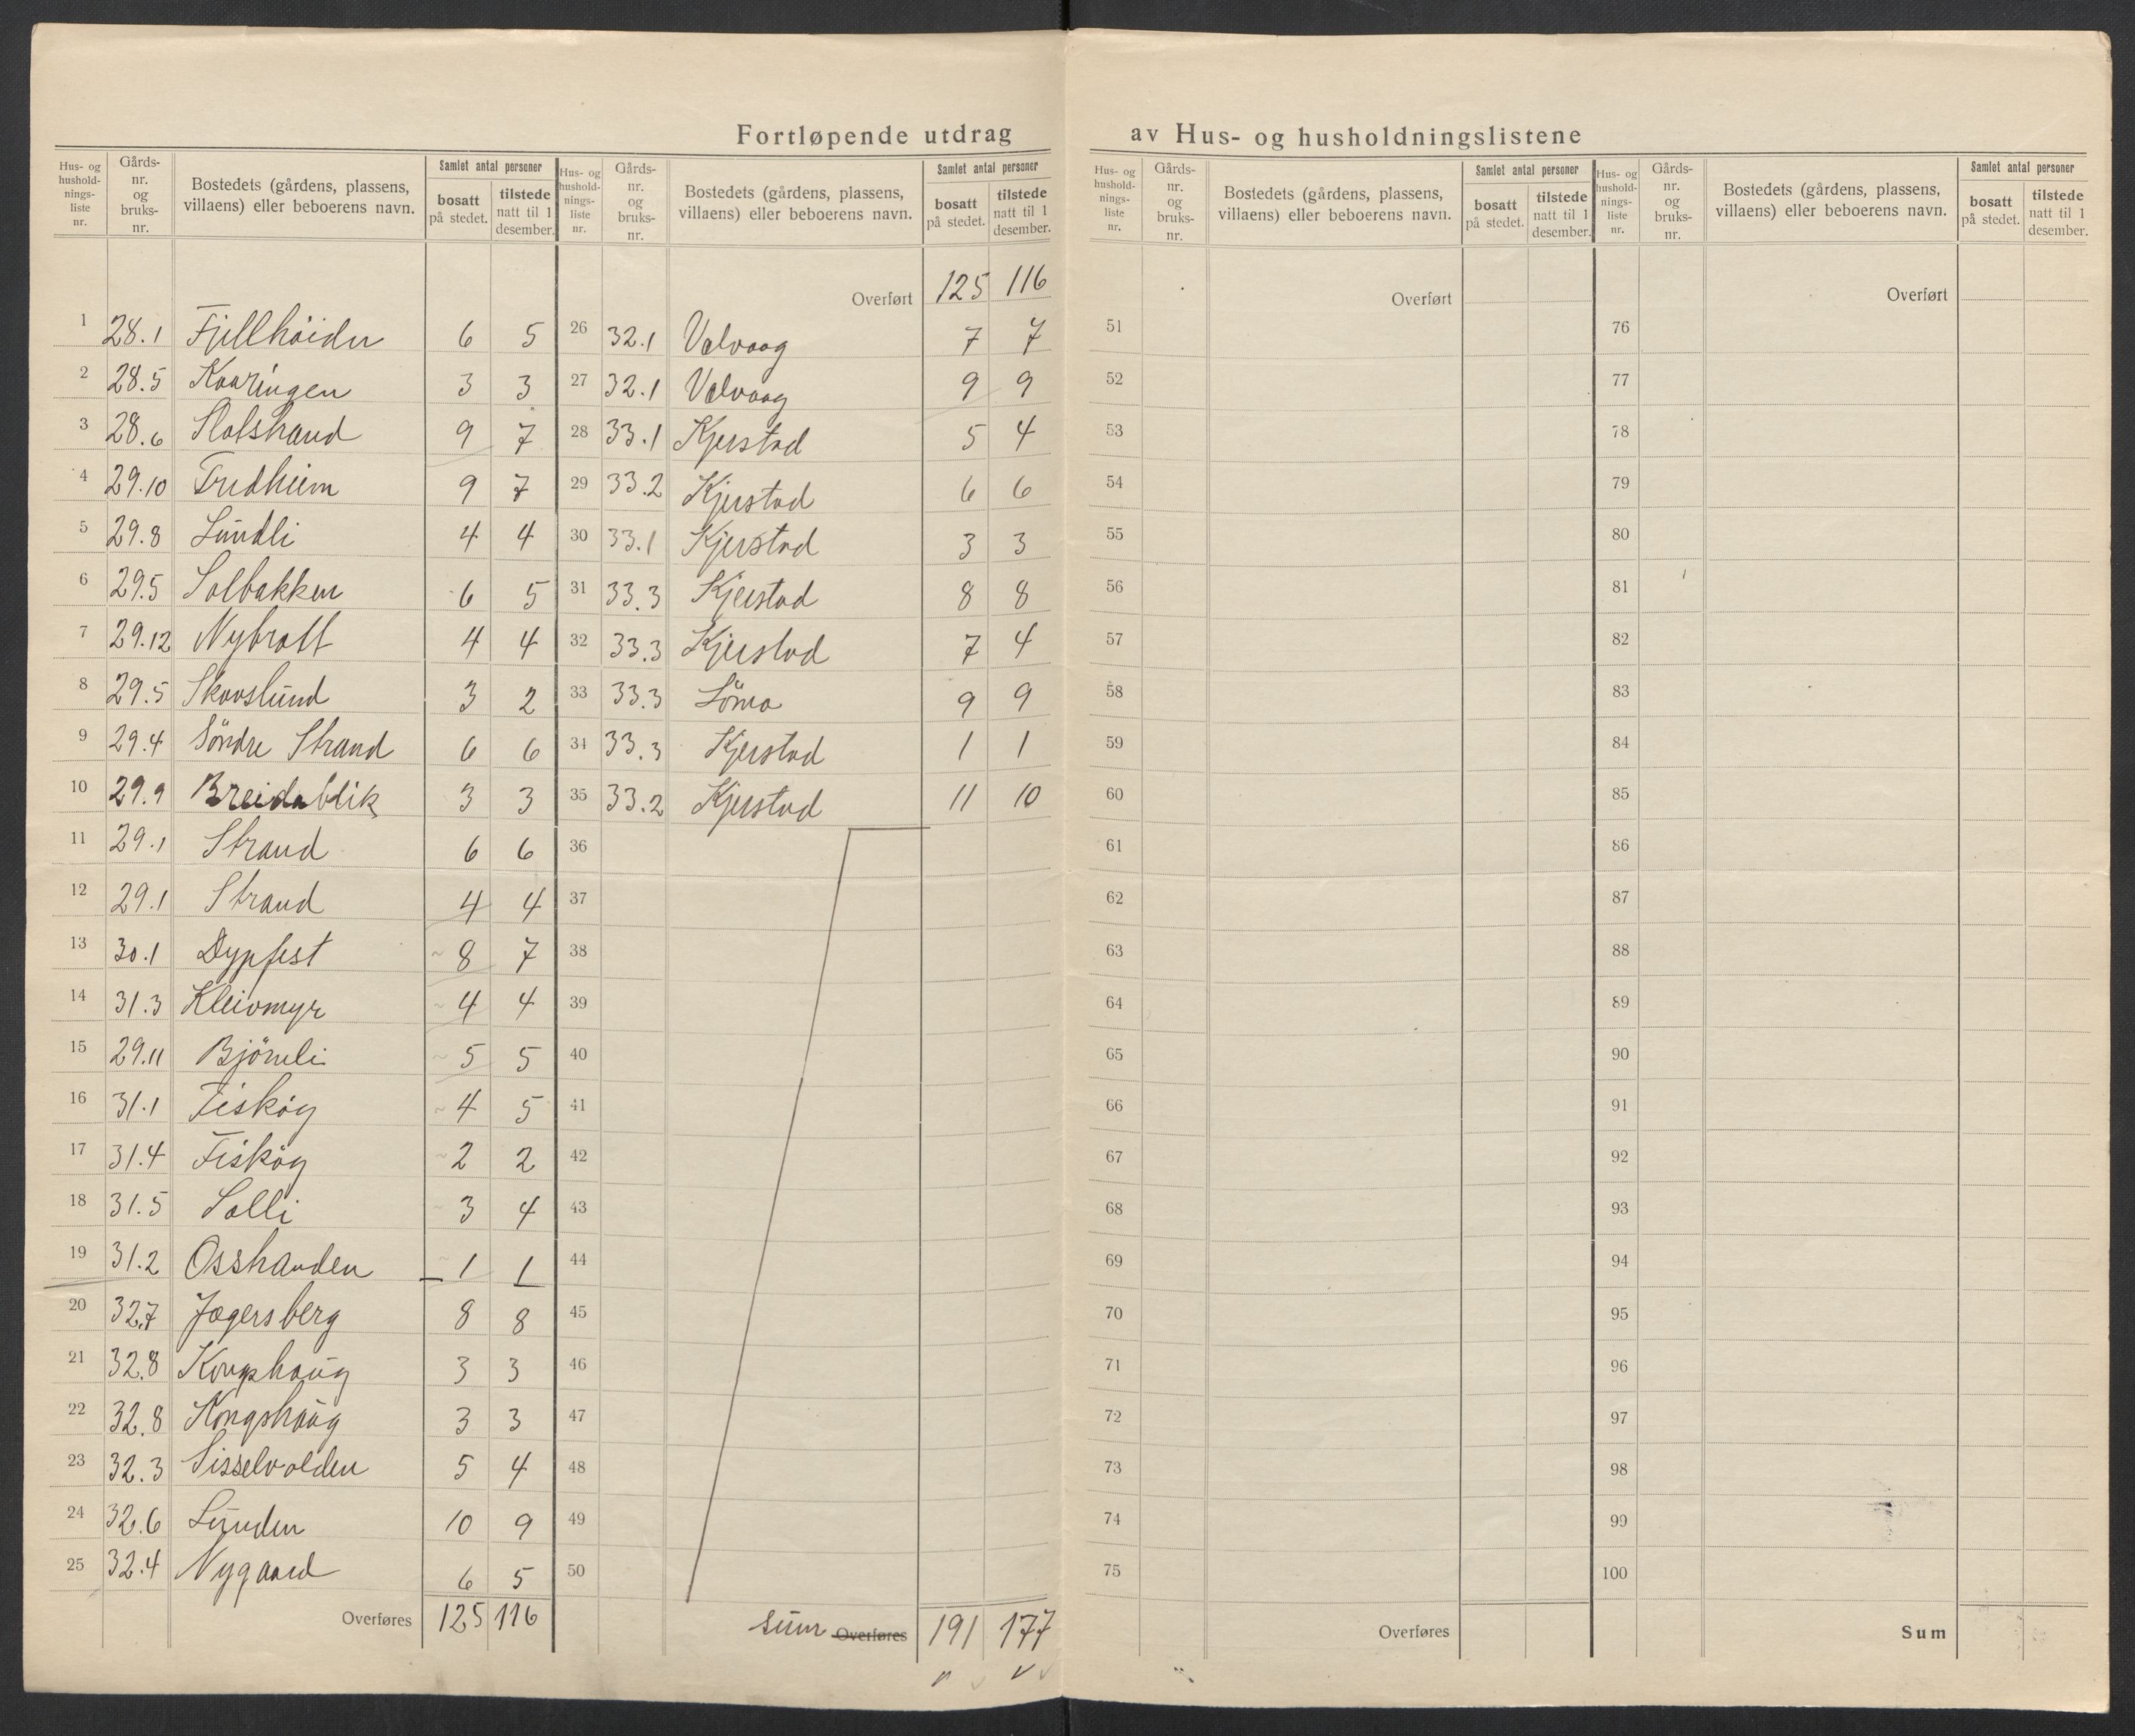 Fortløpende utdrag av Hus- og husholdningslistene
Hus- og husholdnings-liste nr. Gårds-nr. og bruks-nr. Bostedets (gårdens, plassens, villaens) eller beboerens navn. Samlet antal personer bosatt på stedet. tilstede natt til 1 desember.
1 28.1 Fjellhöiden 6 5
2 28.5 Kvaringen 3 3
3 28.6 9 7
4 29.10 Fredheim 9 7
5 29.8 Lundli 4 4
6 29.5 Solbakken 6 5
7 29.12 Nybrott 4 4
8 29.5 Skovslund 3 2
9 29.4 Söndre Strand 6 6
10 29.9 Breidablik 3 3
11 29.1 Strand 6 6
12 29.1 Strand 4 4
13 30.1 Dypfest 8 7
14 31.3 Kleivmyr 4 4
15 29.11 Björnli 5 5
16 31.1 Fiskög 4 5
17 31.4 Fiskög 2 2
18 31.5 Solli 3 4
19 31.2 Osstranden 1 1
20 32.7 Jægersberg 8 8
21 32.8 Kongshaug 3 3
22 32.8 Kongshaug 3 3
23 32.3 Sisselvolden 5 4
24 32.6 Lunden 10 9
25 32.4 Nygaard 6 5
Overføres 125 116
Hus- og husholdnings-liste nr. Gårds-nr. og bruks-nr. Bostedets (gårdens, plassens, villaens) eller beboerens navn. Samlet antal personer bosatt på stedet. tilstede natt til 1 desember.
Overført 125 116
26 32.1 Valvaag 7 7
27 32.1 Valvaag 9 9
28 33.1 Kjerstad 5 4
29 33.2 Kjerstad 6 6
30 33.1 Kjerstad 3 3
31 33.3 Kjerstad 8 8
32 33.3 Kjerstad 7 4
33 33.3 Lömo 9 9
34 33.3 Kjerstad 1 1
35 33.2 Kjerstad 11 10
36
37
38
39
40
41
42
43
44
45
46
47
48
49
50
Sum Overføres 191 177
Hus- og husholdnings-liste nr. Gårds-nr. og bruks-nr. Bostedets (gårdens, plassens, villaens) eller beboerens navn. Samlet antal personer bosatt på stedet. tilstede natt til 1 desember.
Overført
51
52
53
54
55
56
57
58
59
60
61
62
63
64
65
66
67
68
69
70
71
72
73
74
75
Overføres
Hus- og husholdnings-liste nr. Gårds-nr. og bruks-nr. Bostedets (gårdens, plassens, villaens) eller beboerens navn. Samlet antal personer bosatt på stedet. tilstede natt til 1 desember.
Overført
76
77
78
79
80
81
82
83
84
85
86
87
88
89
90
91
92
93
94
95
96
97
98
99
100
Sum